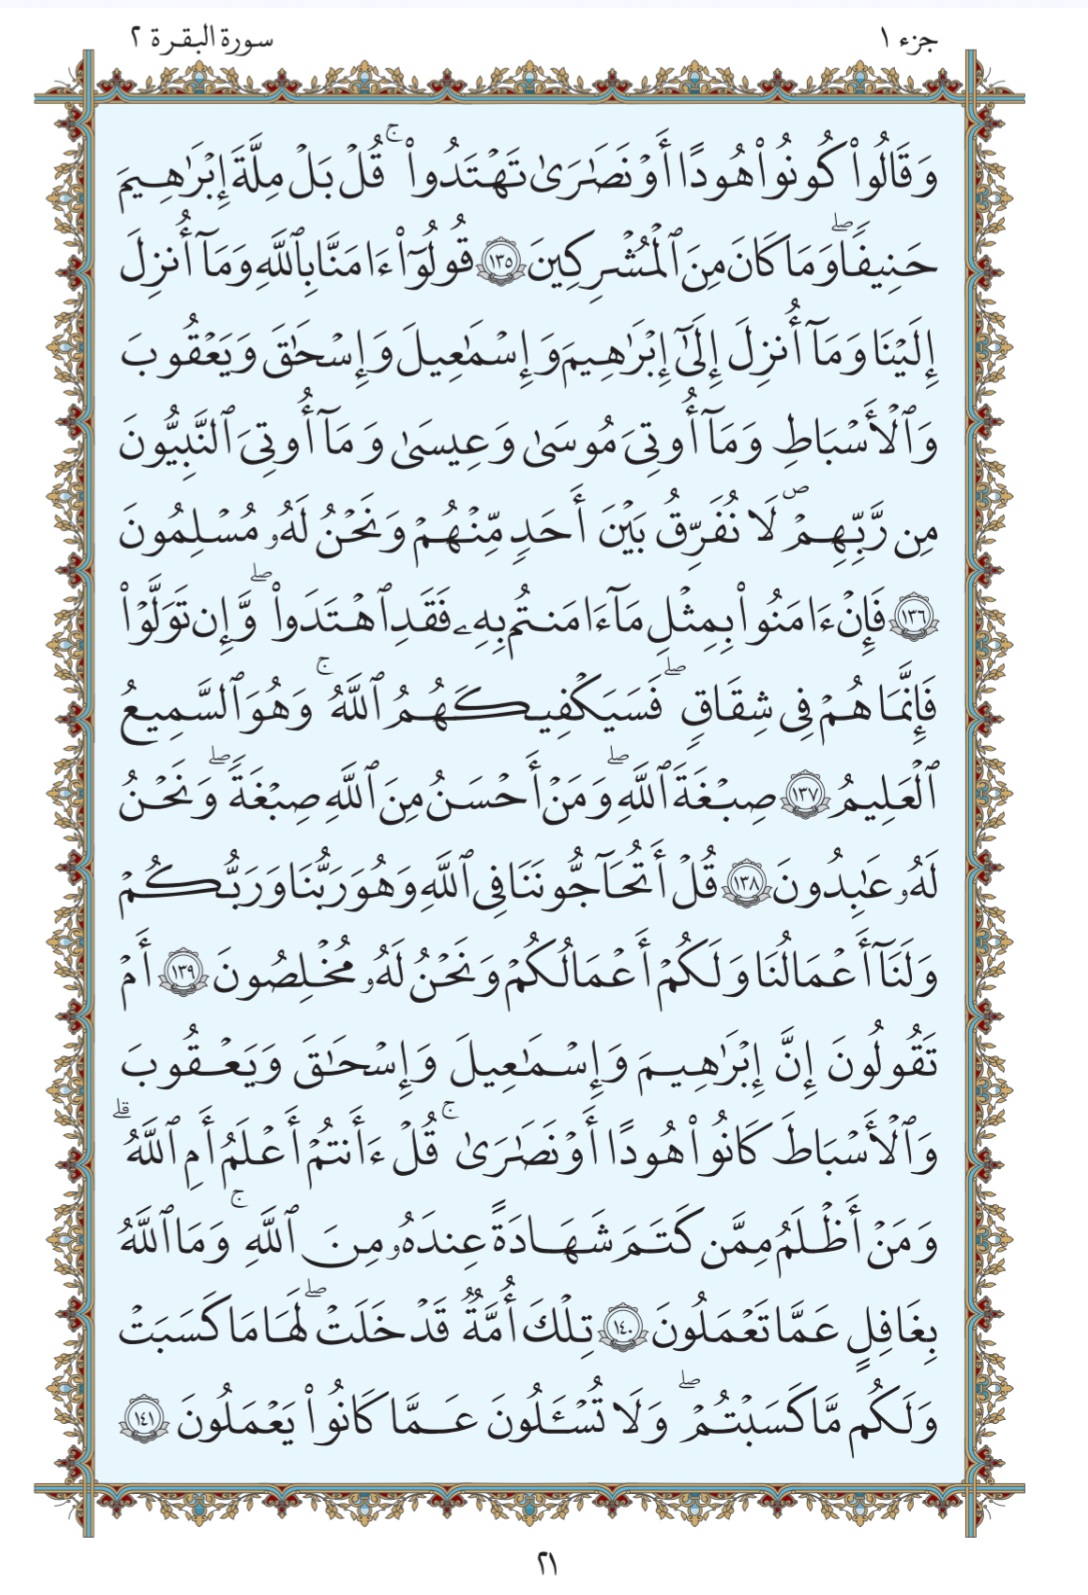 جزء ١
سورة البقرة ٢
وَقَالُوا۟ كُونُوا۟ هُودًا أَوْ نَصَٰرَىٰ تَهْتَدُوا۟ ۚ قُلْ بَلْ مِلَّةَ إِبْرَٰهِيمَ
حَنِيفًا ۖ وَمَا كَانَ مِنَ ٱلْمُشْرِكِينَ ١٣٥ قُولُوٓا۟ ءَامَنَّا بِٱللَّهِ وَمَآ أُنزِلَ
إِلَيْنَا وَمَآ أُنزِلَ إِلَىٰٓ إِبْرَٰهِيمَ وَإِسْمَٰعِيلَ وَإِسْحَٰقَ وَيَعْقُوبَ
وَٱلْأَسْبَاطِ وَمَآ أُوتِىَ مُوسَىٰ وَعِيسَىٰ وَمَآ أُوتِىَ ٱلنَّبِيُّونَ
مِن رَّبِّهِمْ ۖ لَا نُفَرِّقُ بَيْنَ أَحَدٍ مِّنْهُمْ وَنَحْنُ لَهُۥ مُسْلِمُونَ
١٣٦ فَإِنْ ءَامَنُوا۟ بِمِثْلِ مَآ ءَامَنتُم بِهِۦ فَقَدِ ٱهْتَدَوا۟ ۖ وَّإِن تَوَلَّوْا۟
فَإِنَّمَا هُمْ فِى شِقَاقٍ ۖ فَسَيَكْفِيكَهُمُ ٱللَّهُ ۚ وَهُوَ ٱلسَّمِيعُ
ٱلْعَلِيمُ ١٣٧ صِبْغَةَ ٱللَّهِ ۖ وَمَنْ أَحْسَنُ مِنَ ٱللَّهِ صِبْغَةً ۖ وَنَحْنُ
لَهُۥ عَٰبِدُونَ ١٣٨ قُلْ أَتُحَآجُّونَنَا فِى ٱللَّهِ وَهُوَ رَبُّنَا وَرَبُّكُمْ
وَلَنَآ أَعْمَالُنَا وَلَكُمْ أَعْمَالُكُمْ وَنَحْنُ لَهُۥ مُخْلِصُونَ ١٣٩ أَمْ
تَقُولُونَ إِنَّ إِبْرَٰهِيمَ وَإِسْمَٰعِيلَ وَإِسْحَٰقَ وَيَعْقُوبَ
وَٱلْأَسْبَاطَ كَانُوا۟ هُودًا أَوْ نَصَٰرَىٰ ۚ قُلْ ءَأَنتُمْ أَعْلَمُ أَمِ ٱللَّهُ ۗ
وَمَنْ أَظْلَمُ مِمَّن كَتَمَ شَهَٰدَةً عِندَهُۥ مِنَ ٱللَّهِ ۚ وَمَا ٱللَّهُ
بِغَٰفِلٍ عَمَّا تَعْمَلُونَ ١٤٠ تِلْكَ أُمَّةٌ قَدْ خَلَتْ ۖ لَهَا مَا كَسَبَتْ
وَلَكُم مَّا كَسَبْتُمْ ۖ وَلَا تُسْـَٔلُونَ عَمَّا كَانُوا۟ يَعْمَلُونَ ١٤١
٢١